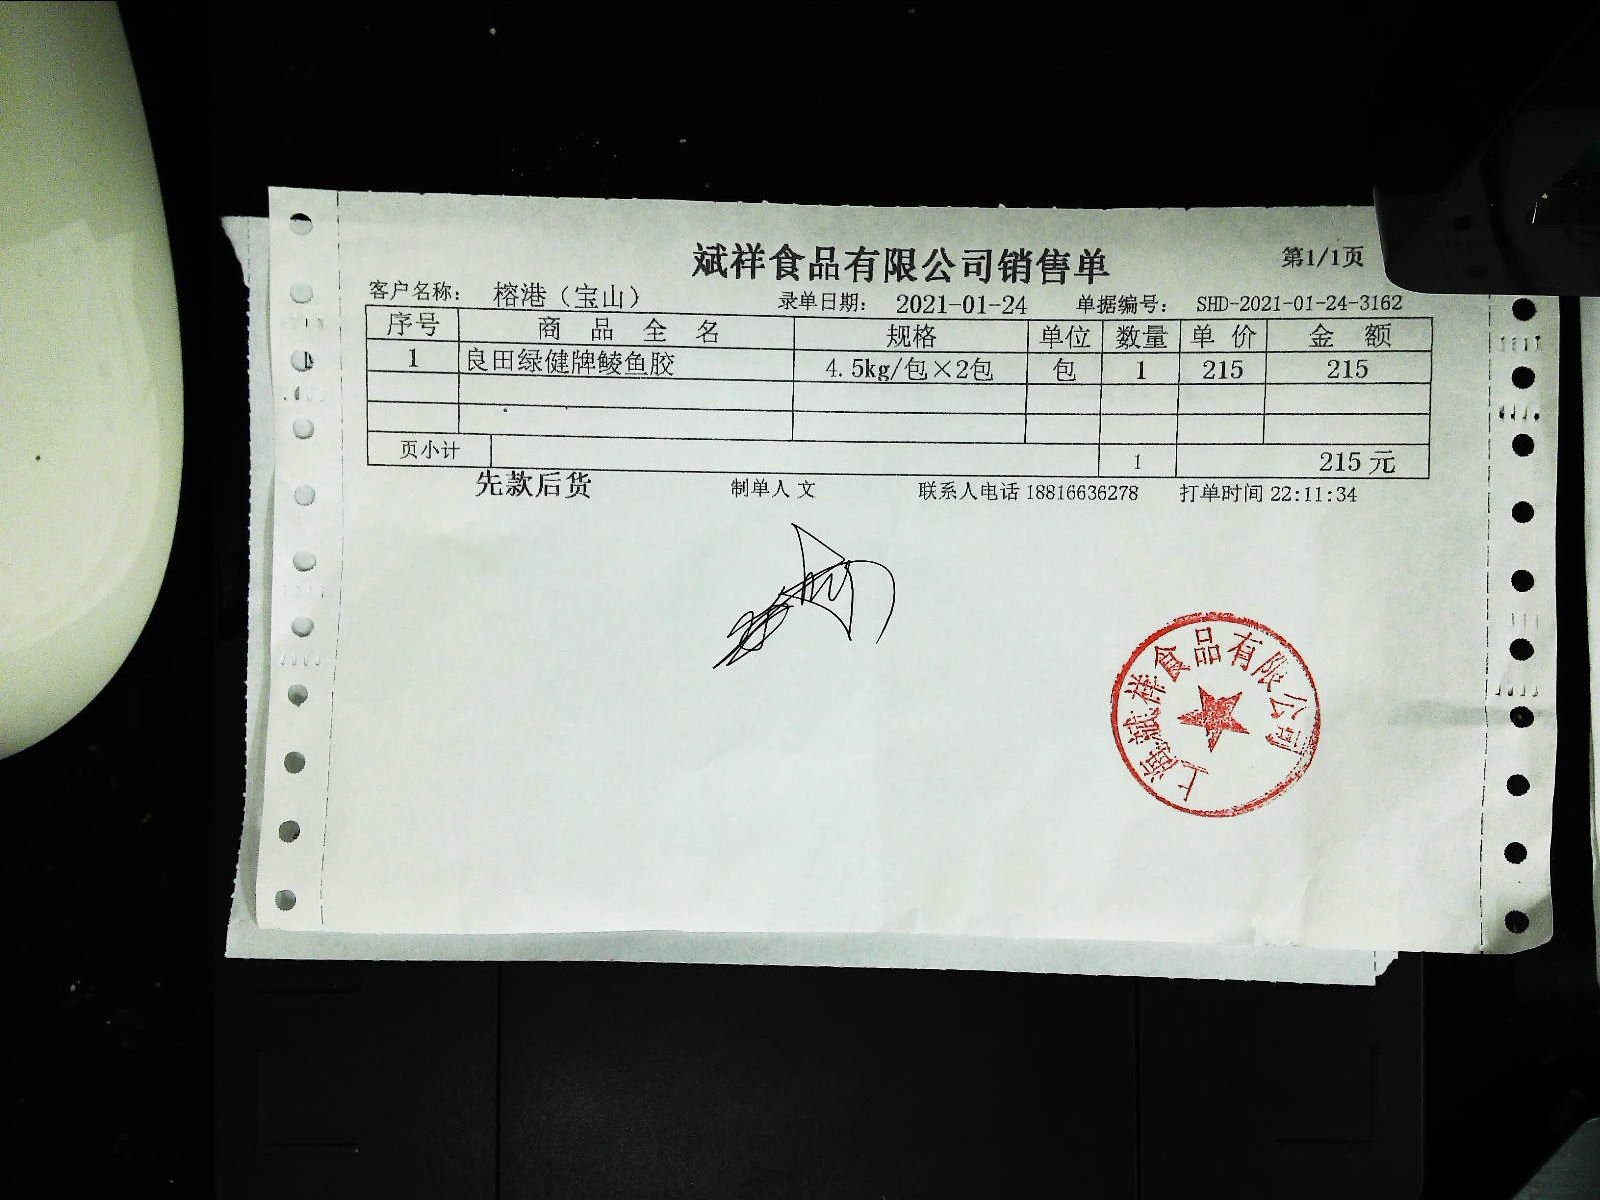 斌祥食品有限公司销售单
第1/1页
客户名称: 榕港（宝山） 录单日期: 2021-01-24 单据编号: SHD-2021-01-24-3162
序号 商品全名 规格 单位 数量 单价 金额
1 良田绿健牌鲮鱼胶 4.5kg/包×2包 包 1 215 215
页小计 1 215元
先款后货 制单人 文 联系人电话 18816636278 打单时间 22:11:34
上海斌祥食品有限公司